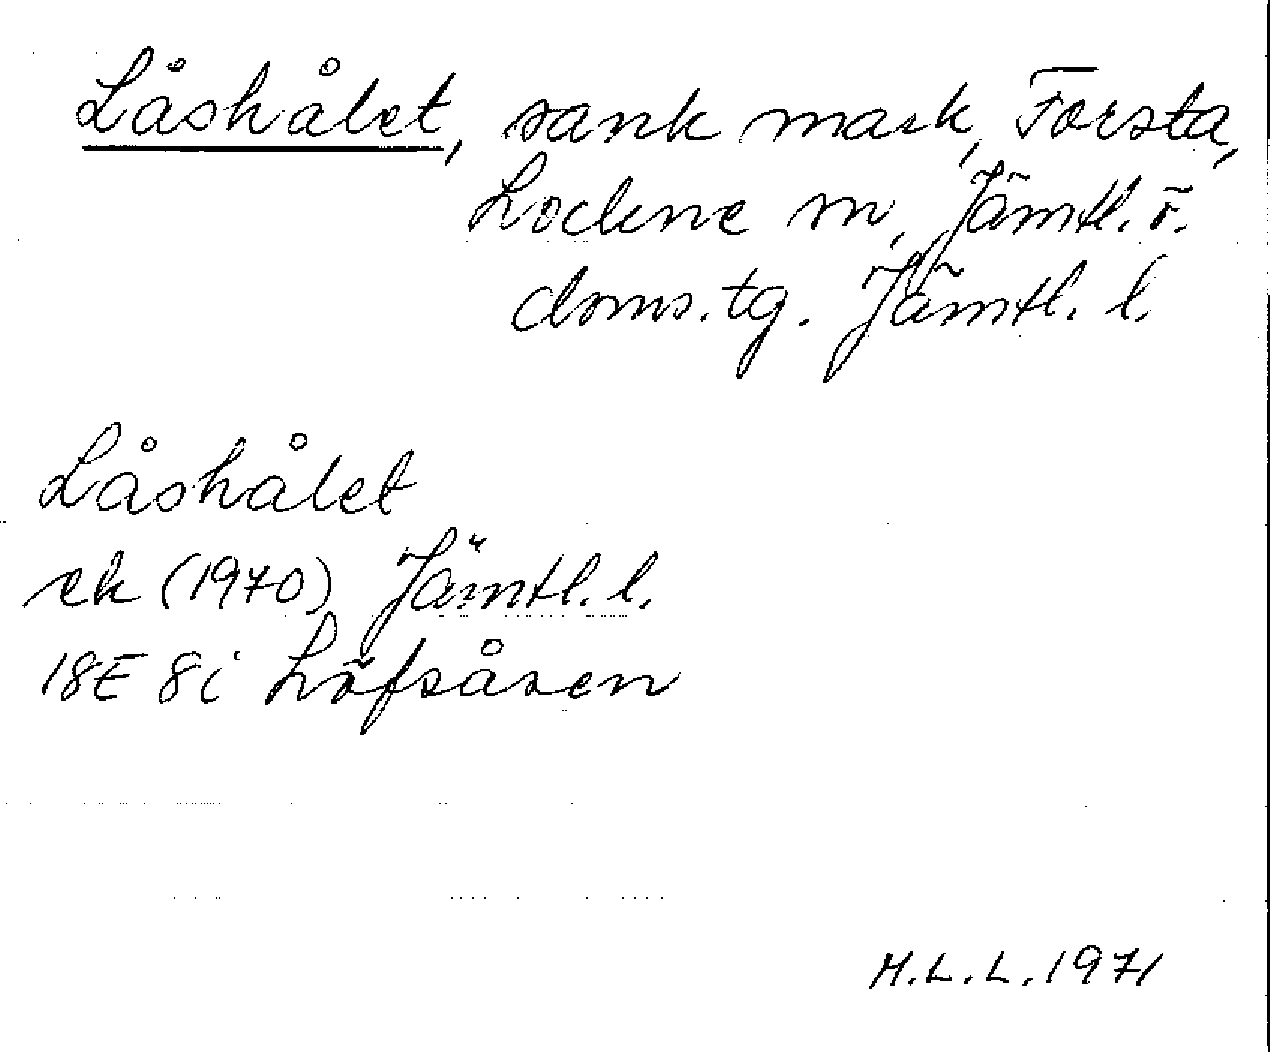 Låshålet, sank mark, Forsta,
Lockne sn, Jämtl. ö.
doms.tg. Jämtl. l.
Låshålet
ek (1970) Jämtl. l.
18E 8i Löfsåsen
M.L.L. 1971